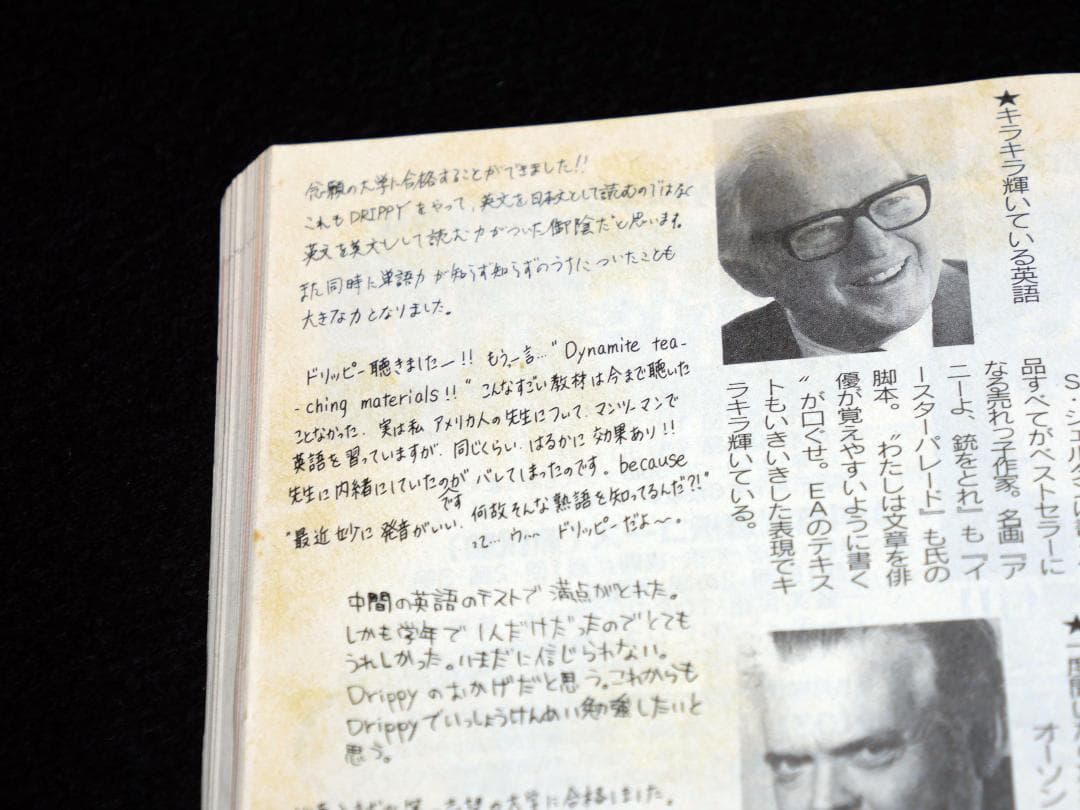 念願の大学に合格することができました!!
これもDRIPPYをやって、英文を日本文として読むのではなく
英文を英文として読む力がついた御陰だと思います。
また同時に単語力が知らず知らずのうちについたことも
大きな力となりました。
ドリッピー聴きましたー!! もう一言…“Dynamite tea-
-ching materials!!” こんなすごい教材は今まで聴いた
ことなかった。実は私 アメリカ人の先生について、マンツーマンで
英語を習っていますが、同じくらい、はるかに効果あり!!
先生に内緒にしていたのがバレてしまったのです。because
です
“最近妙に発音がいい、何故そんな熟語を知ってるんだ?!”
って… ウ… ドリッピーだよ〜。
中間の英語のテストで満点がとれた。
しかも学年で1人だけだったのでとても
うれしかった。いまだに信じられない。
Drippyのおかげだと思う。これからも
Drippyでいっしょうけんめい勉強したいと
思う。
志望の大学に合格しました。
★キラキラ輝いている英語
S・シェルダンは
品すべてがベストセラーに
なる売れっ子作家。名画『ア
ニーよ、銃をとれ』も『イ
ースターパレード』も氏の
脚本。〝わたしは文章を俳
優が覚えやすいように書く
〟が口ぐせ。EAのテキス
トもいきいきした表現でキ
ラキラ輝いている。
★一度聞いたら
オーソン